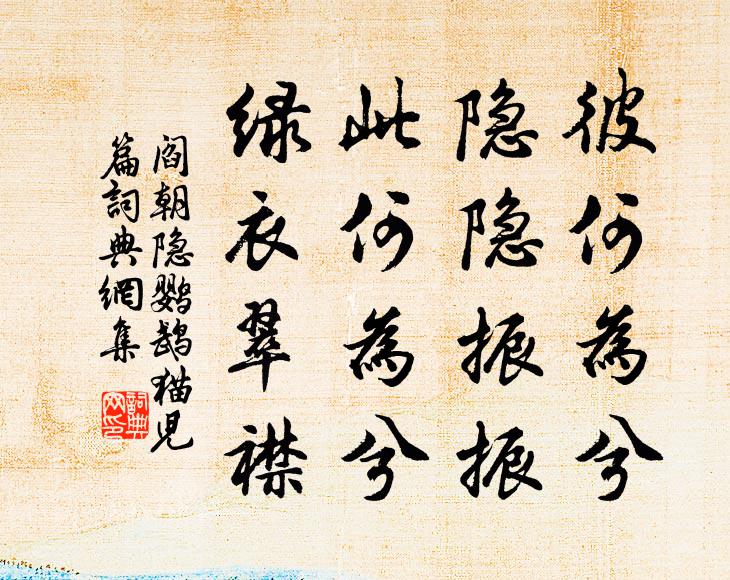 彼何為兮
隐隐振振
此何為兮
绿衣翠襟
阎朝隐鹦鹉猫児
篇詞典網集
詞典
网印